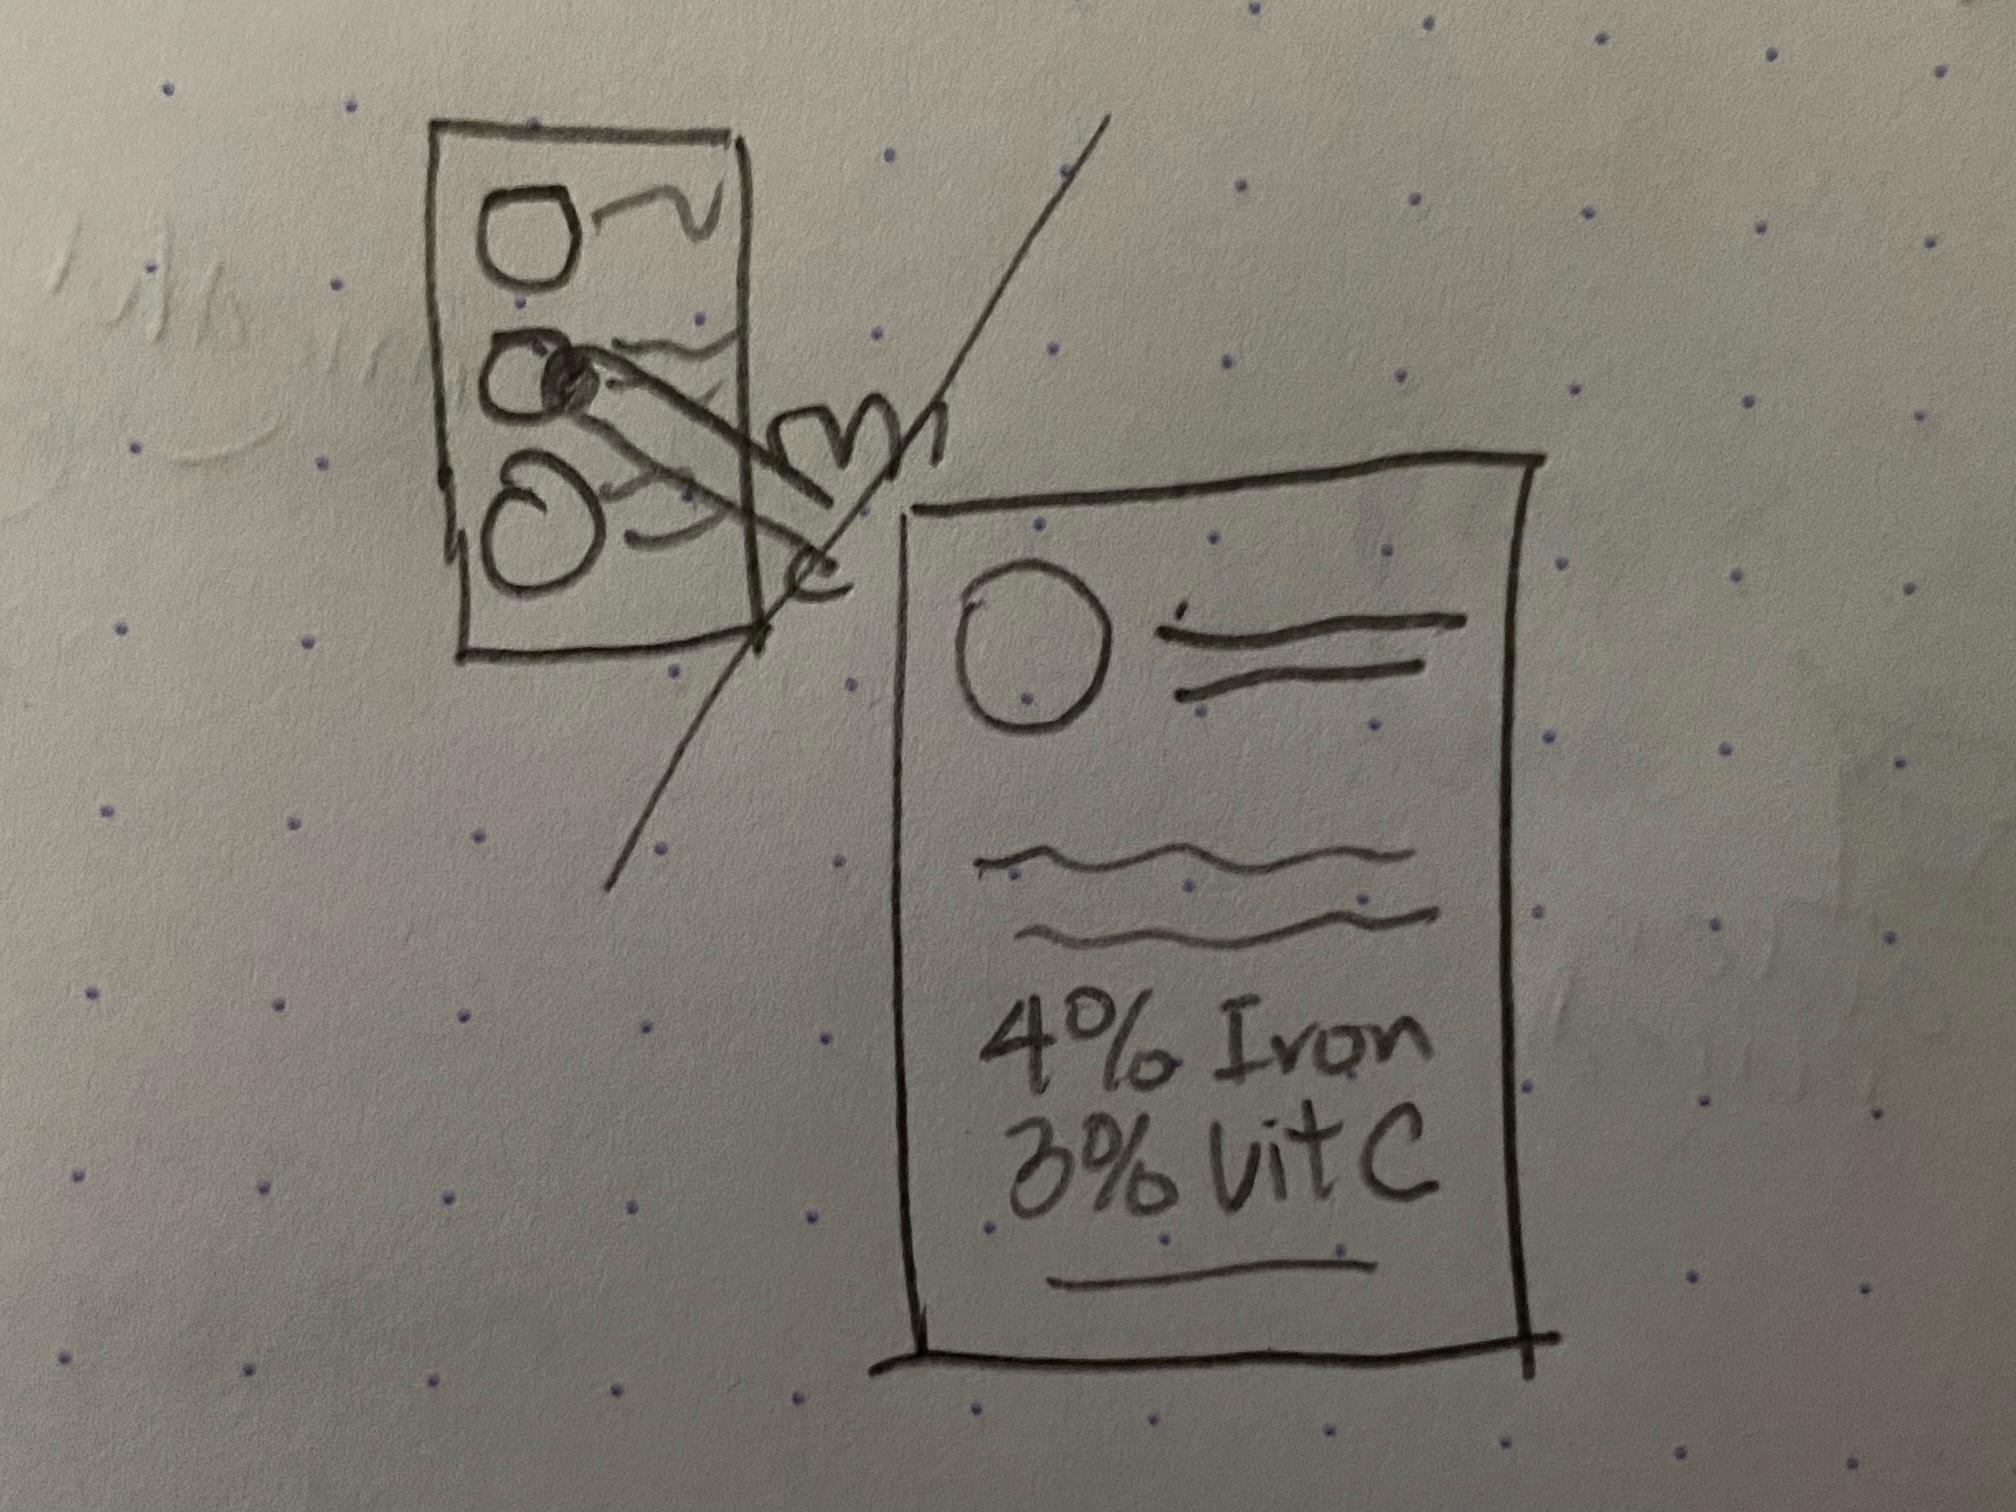 4% Iron
3% Vit C